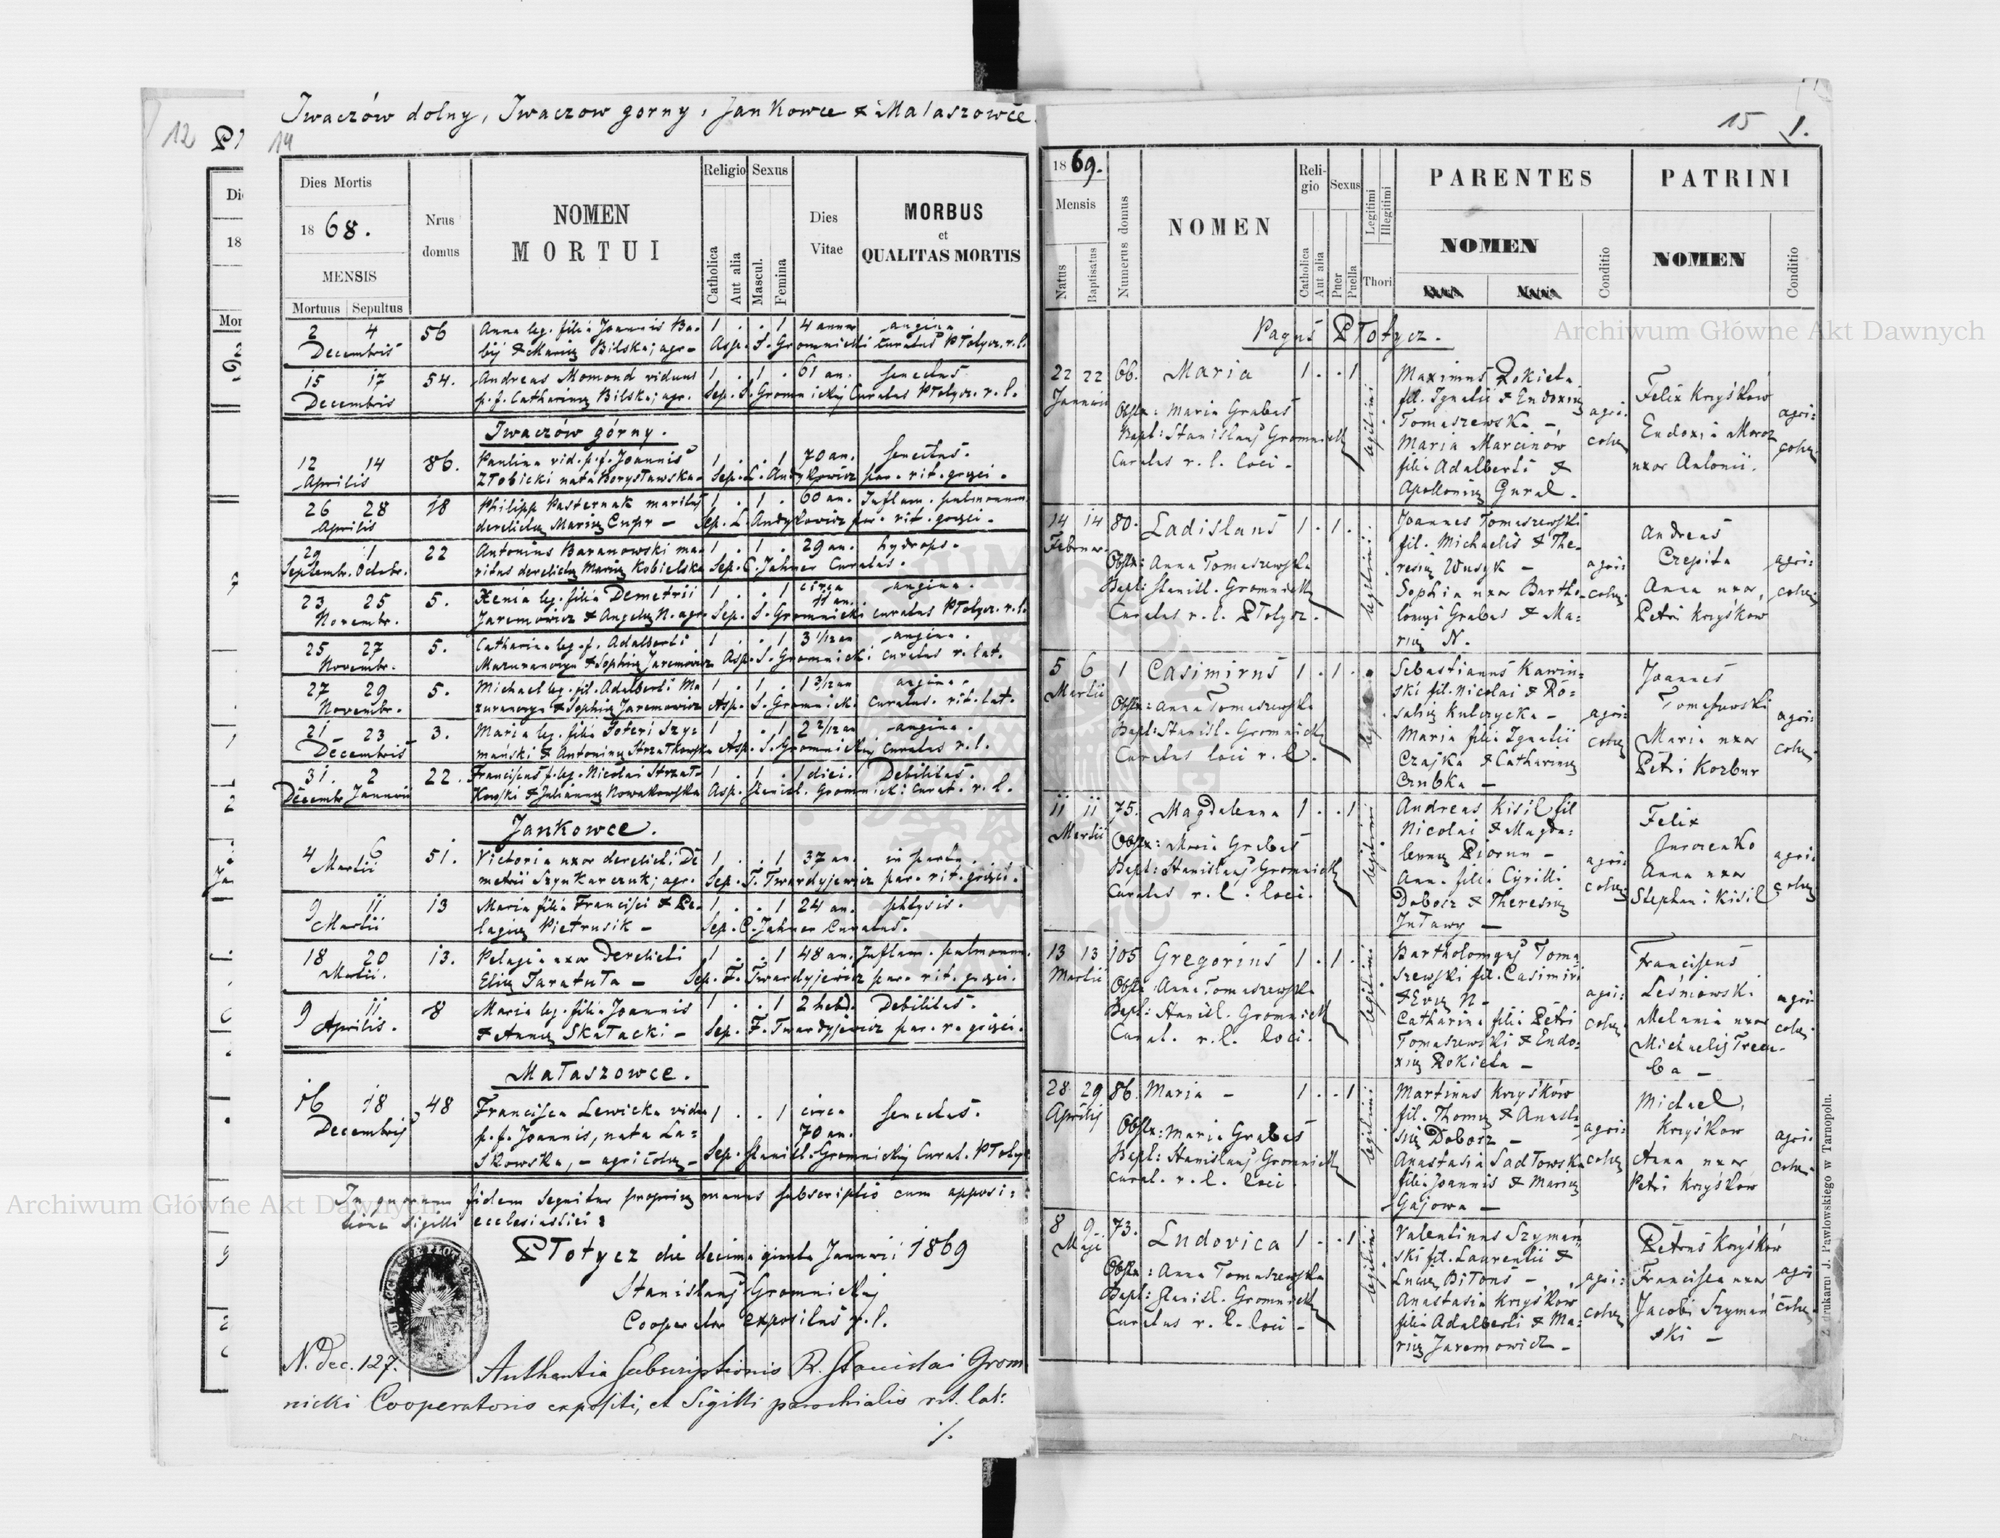 Iwaczów dolny, Iwaczow gorny, Jankowce & Małaszowce
12
14
Dies Mortis
1868.
MENSIS
Mortuus Sepultus
Nrus domus
NOMEN
MORTUI
Religio
Catholica
Aut alia
Sexus
Mascul.
Femina
Dies
Vitae
MORBUS
et
QUALITAS MORTIS
2 4 56 Anna leg. filia Joannis Ba- 1 . . 1 4 annor angina.
Decembris bij & Mariae Bilska; agr- Asp. S. Gromnicki curatus Płotycz. r. l.
15 17 54. Andreas Momond viduus 1 . 1 . 61 an. senectus
Decembris p. f. Catharinae Bilska; agr. Sep. S. Gromnickij Curatus Płotycz. r. l.
Iwaczów górny.
12 14 86. Paulina vid. p. f. Joannis 1 . . 1 70 an. senectus.
Aprilis Złobicki nata Borysławska- Sep. L. Andykowicz par. rit. graeci.
26 28 18 Philipp Pasternak maritus 1 . 1 . 60 an. Inflam. pulmonum
Aprilis derelictae Mariae Cupr - Sep. L. Andykowicz par. rit. graeci.
29 1 22 Antonius Baranowski ma- 1 . 1 . 29 an. hydrops.
Septembr. Octobr. ritus derelictae Mariae Kobielska Sep. C. Jahner Curatus.
23 25 5. Xenia leg. filia Demetrii 1 . . 1 circa 11 an. angina.
Novembr. Jaremowicz & Angelae N. agr. Sep. S. Gromnicki curatus Płotycz. r. l.
25 27 5. Catharina leg. f. Adalberti 1 . . 1 3 1/12 an angina.
Novembr. & Sophiae Jaremowicz Asp. S. Gromnicki curatus r. lat.
27 29 5. Michael leg. fil. Adalberti Ma 1 . 1 . 1 3/12 an angina.
Novembr. & Sophiae Jaremowicz Asp. S. Gromnicki curatus. rit. lat.
21 23 3. Maria leg. filia Petri Szy- 1 . . 1 2 2/12 an angina.
Decembris mański & Antoninae Strzałkowska Asp. S. Gromnickij curatus r. l.
31. 2 22. Franciscus f. leg. Nicolai Strzał- 1 . 1 . 1 diei. Debilitas.
Decembr Januarii kowski & Juliannae Nowakowska Asp. Stanisl. Gromnicki curat. r. l.
Jankowce.
4 6 51. Victoria uxor derelicti De 1 . . 1 37 an. in partu.
Martii metrii Szynkarczuk; agr. Sep. F. Twardyjewicz par. rit. graeci.
9 11 13 Maria filia Francisci & Pe- 1 . . 1 24 an. phtysis.
Martii lagiae Pietrusik - Sep. C. Jahner Curatus.
18 20 13. Pelagia uxor derelicti 1 . . 1 48 an. Inflam. pulmonum.
Martii. Eliae Taratuta - Sep. F. Twardyjewicz par. rit. graeci.
9 11 8 Maria leg. filia Joannis 1 . . 1 2 hebd. Debilitas.
Aprilis. & Annae Skałacki - Sep. F. Twardyjewicz par. r. graeci.
Małaszowce.
16 18 48 Francisca Lewicka vidua 1 . . 1 circa senectus.
Decembris p. f. Joannis, nata La- 70 an.
skowska, - agricolae - Sep. Stanisl. Gromnickij Curat. Płotyc
In quorum fidem sequitur propriae manus subscriptio cum apposi-
tione sigilli ecclesiastici:
Płotycz die decima quinta Januarii 1869
Stanislaus Gromnickij
Cooperator expositus r. l.
N. dec. 127. Authentia subscriptionis R. Stanislai Grom
nicki Cooperatoris expositi, et Sigilli parochialis rit. lat:
/.
15 1.
1869.
Mensis
Natus
Baptisatus
Numerus domus
NOMEN
Religio
Catholica
Aut alia
Sexus
Puer
Puella
Legitimi
Illegitimi
Thori
PARENTES
NOMEN
Conditio
PATRINI
NOMEN
Conditio
Pagus Płotycz.
22 22 66. Maria 1 . . 1 legitimi
Januarii
Obstx: Maria Grabas
Bapt: Stanislaus Gromnicki
Curatus r. l. loci -
Maximus Rokieta
fil. Ignatii & Eudoxiae
Tomaszewska -
Maria Marcinów
filia Adalberti &
Apolloniae Gural.
agri-
colae
Felix Kryśków
Eudoxia Moroz
uxor Antonii.
agri-
colae
14 14 80. Ladislaus 1 . 1 . legitimi
Februar.
Obstx: Anna Tomaszewska
Bapt: Stanisl. Gromnicki
Curatus r. l. Płotycz.
Joannes Tomaszewski
fil. Michaelis & The-
resiae Wusyk -
Sophia uxor Bartho-
lomaei Grabas & Ma-
riae N.
agri-
colae
Andreas
Czepita
Anna uxor,
Petri Kryśkow
agri-
colae
5 6 1 Casimirus 1 . 1 .
Martii
Obstx: Anna Tomaszewska
Bapt: Stanisl. Gromnicki
Curatus loci r. l.
Sebastianus Kawin-
ski fil. Nicolai & Ro-
saliae Kulczycka -
Maria filia Ignatii
Czajka & Catharinae
Czubka -
agri-
colae
Joannes
Tomaszewski
Maria uxor
Petri Korbur
agri-
colae
11 11 75. Magdalena 1 . . 1 legitimi
Martii
Obstx: Maria Grabas
Bapt: Stanislaus Gromnicki
Curatus r. l. loci.
Andreas Kisil fil
Nicolai & Magda-
lenae Piorun -
Anna filia Cyrilli
Dobosz & Theresiae
Juławy -
agri-
colae
Felix
Jurczenko
Anna uxor
Stephani Kisil
agri-
colae
13 13 105 Gregorius 1 . 1 . legitimi
Martii
Obstx: Anna Tomaszewska
Bapt: Stanisl. Gromnicki
Curat. r. l. loci.
Bartholomaeus Toma-
szewski fil. Casimiri
& Evae N-
Catharina filia Petri
Tomaszewski & Eudo-
xiae Rokieta -
agri-
colae
Franciscus
Leśniowski
Melania uxor
Michaelis Trem-
ba -
agri
colae
28 29 86. Maria - 1 . . 1 legitimi
Aprilis
Obstx: Maria Grabas
Bapt: Stanislaus Gromnicki
Curat. r. l. loci
Martinus Kryśków
fil. Thomae & Anasta-
siae Dobosz -
Anastasia Sadłowska
filia Joannis & Mariae
Gajowa -
agri-
colae
Michael,
Kryśkow
Anna uxor
Petri Kryśkow
agri-
colae
8 9. 73. Ludovica 1 . . 1 legitimi
Maji
Obstx: Anna Tomaszewska
Bapt: Stanisl. Gromnicki
Curatus r. l. loci -
Valentinus Szymań-
ski fil. Laurentii &
Luciae Bitous -
Anastasia Kryśków
filia Adalberti & Ma-
riae Jaremowicz -
agri-
colae
Petrus Kryśków
Francisca uxor
Jacobi Szymań
ski -
agri
colae
Z drukarni J. Pawłowskiego w Tarnopolu.
Archiwum Główne Akt Dawnych
Archiwum Główne Akt Dawnych